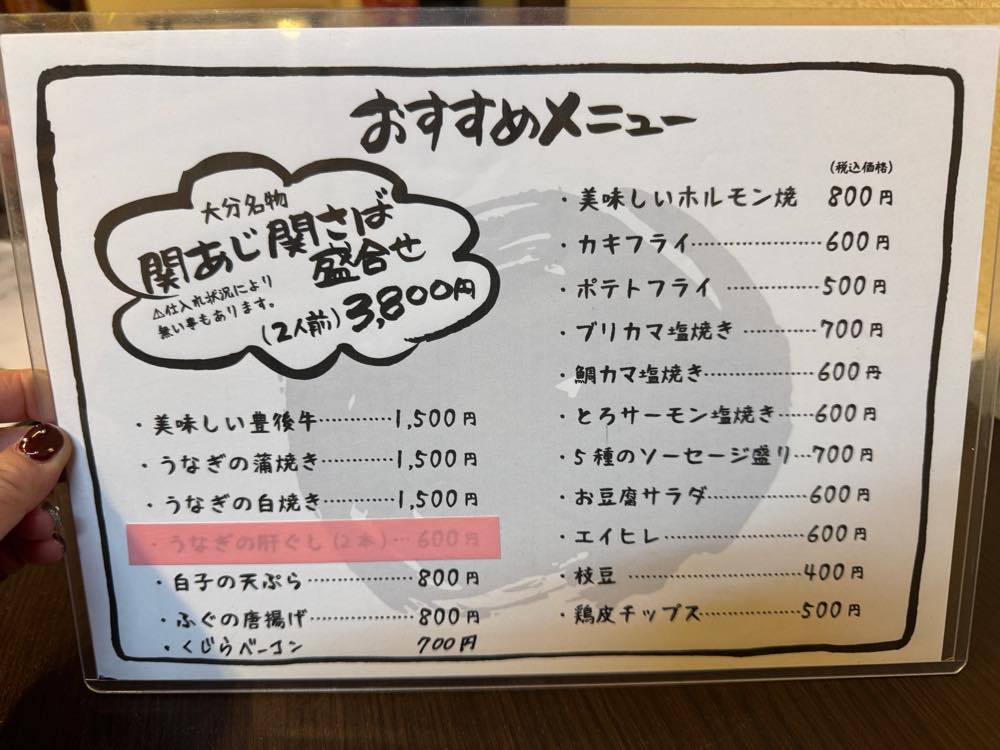 おすすめメニュー
(税込価格)
大分名物
関あじ関さば
盛合せ
△仕入れ状況により
無い事もあります。
(2人前)3,800円
・美味しい豊後牛…………1,500円
・うなぎの蒲焼き…………1,500円
・うなぎの白焼き…………1,500円
・うなぎの肝ぐし(2本)…600円
・白子の天ぷら……………800円
・ふぐの唐揚げ……………800円
・くじらベーコン 700円
・美味しいホルモン焼 800円
・カキフライ………………600円
・ポテトフライ ……………500円
・ブリカマ塩焼き …………700円
・鯛カマ塩焼き……………600円
・とろサーモン塩焼き……600円
・5種のソーセージ盛り…700円
・お豆腐サラダ……………600円
・エイヒレ…………………600円
・枝豆 ………………………400円
・鶏皮チップス……………500円